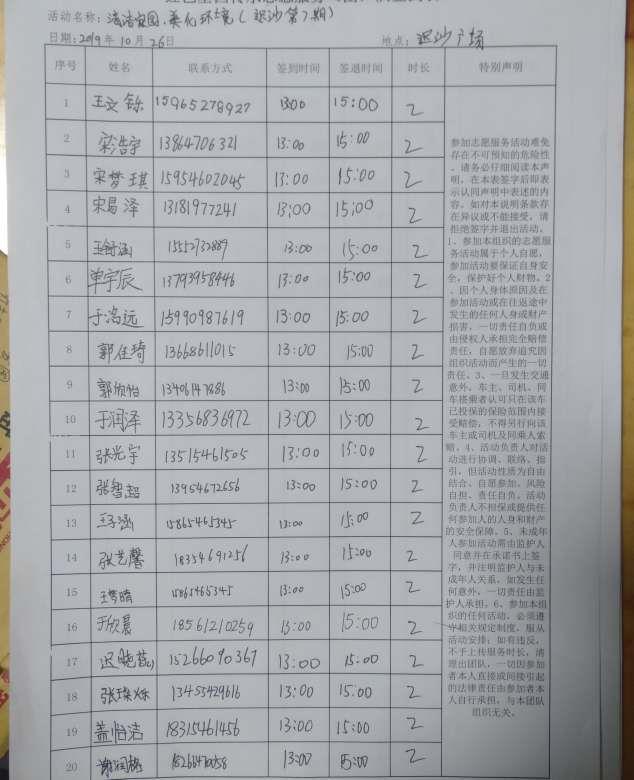 活动名称：清洁家园，美化环境（迟沙第7期）
日期：2019年10月26日 地点：迟沙广场
序号 姓名 联系方式 签到时间 签退时间 时长 特别声明
1 王文铄 15965278927 13:00 15:00 2
2 宋浩宇 13864706321 13:00 15:00 2
3 宋梦琪 15954602045 13:00 15:00 2
4 宋易泽 13181977241 13:00 15:00 2
5 15552732889 13:00 15:00 2
6 单宇辰 13793958446 13:00 15:00 2
7 于浩远 15990987619 13:00 15:00 2
8 郭佳琦 13668611015 13:00 15:00 2
9 郭欣怡 13:00 15:00 2
10 于润泽 13356836972 13:00 15:00 2
11 张光宇 13515461505 13:00 15:00 2
12 张智超 13954672656 13:00 15:00 2
13 王子涵 15865465345 13:00 15:00 2
14 张艺馨 18354691256 13:00 15:00 2
15 王梦晴 15865465345 13:00 15:00 2
16 于欣晨 18561210259 13:00 15:00 2
17 迟晓 15266090367 13:00 15:00 2
18 张璨烁 13455429616 13:00 15:00 2
19 盖怡洁 18315461456 13:00 15:00 2
20 13:00 15:00 2
参加志愿服务活动难免
存在不可预知的危险性
，请务必仔细阅读本声
明，在本表签字后即表
示认同声明中表述的内
容。如对本说明条款存
在异议或不能接受，请
拒绝签字并退出活动。
1、参加本组织的志愿服
务活动属于个人自愿，
参加活动要保证自身安
全，保护好个人财物。2
、因个人身体原因及在
参加活动或在往返途中
发生的任何人身或财产
损害，一切责任自负或
由侵权人承担完全赔偿
责任，自愿放弃追究因
组织活动而产生的一切
责任。3、一旦发生交通
意外，车主、司机、同
车搭乘者认可只在该车
已投保的保险范围内接
受赔偿，不得另行向该
车主或司机及同乘人索
赔。4、活动负责人对活
动进行协调、联络、指
引，但活动性质为自由
结合、自愿参加、风险
自担、责任自负。活动
负责人不担保或提供任
何参加人的人身和财产
的安全保障。5、未成年
人参加活动需由监护人
同意并在承诺书上签
字，并注明监护人与未
成年人关系，如发生任
何意外，一切责任由监
护人承担。6、参加本组
织的任何活动，必须遵
守相关规定制度，服从
活动安排；如有违反，
不予上传服务时长，清
理出团队，一切因参加
者本人直接或间接引起
的法律责任由参加者本
人自行承担，与本团队
组织无关。